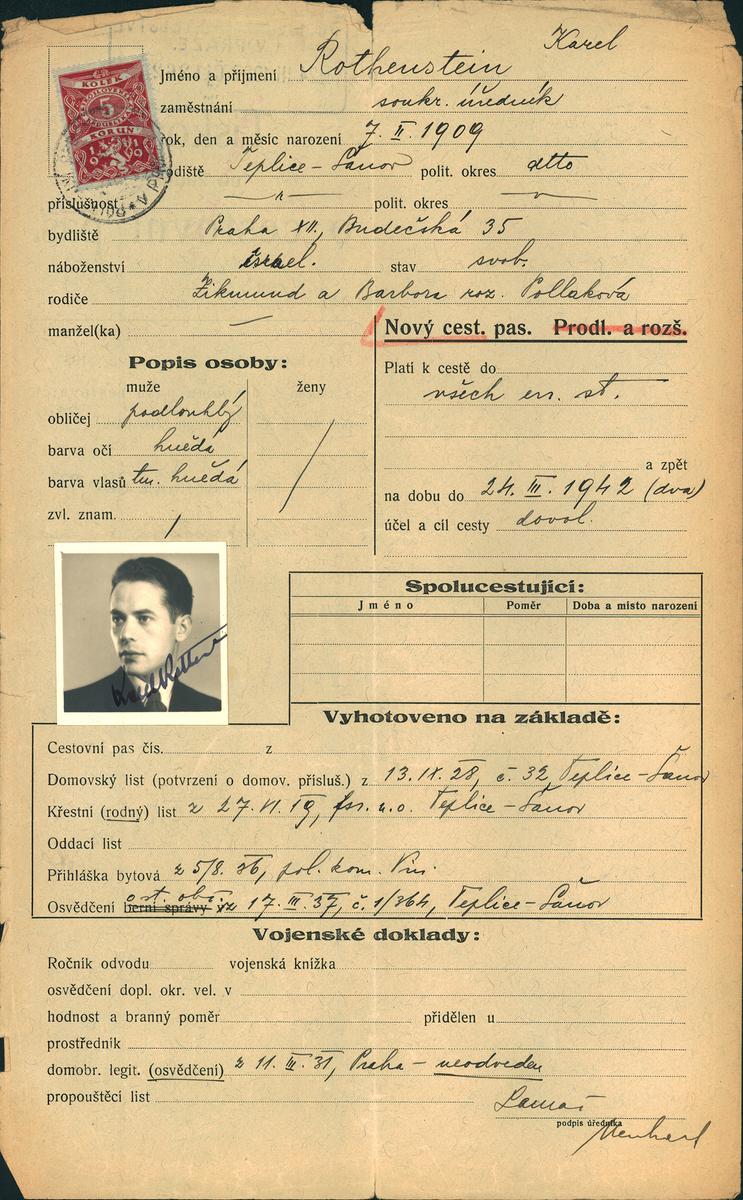 Karel
Jméno a přijmení Rothenstein
zaměstnání soukr. úředník
rok, den a měsíc narození 7. II. 1909
rodiště Teplice-Šanov polit. okres dtto
příslušnost —"— polit. okres —"—
bydliště Praha XII, Budečská 35
náboženství israel. stav svob.
rodiče Zikmund a Barbora roz. Pollaková
manžel(ka) —
KOLEK
5
KORUN
1919
Nový cest. pas. Prodl. a rozš.
Popis osoby:
muže ženy
obličej podlouhlý
barva očí hnědá
barva vlasů tm. hnědá
zvl. znam. /
Platí k cestě do
všech ev. st.
a zpět
na dobu do 24. III. 1942 (dva)
účel a cíl cesty dovol.
Spolucestující:
Jméno Poměr Doba a místo narození
Vyhotoveno na základě:
Cestovní pas čís. z
Domovský list (potvrzení o domov. přísluš.) z 13. IX. 28, č. 32, Teplice-Šanov
Křestní (rodný) list z 27. VI. 19, Teplice-Šanov
Oddací list
Přihláška bytová z 5/8. 36, pol. kom.
Osvědčení berní správy z 17. III. 37, č. 1/364, Teplice-Šanov
Vojenské doklady:
Ročník odvodu vojenská knížka
osvědčení dopl. okr. vel. v
hodnost a branný poměr přidělen u
prostředník
domobr. legit. (osvědčení) z 11. III. 31, Praha - neodveden
propouštěcí list
podpis úředníka